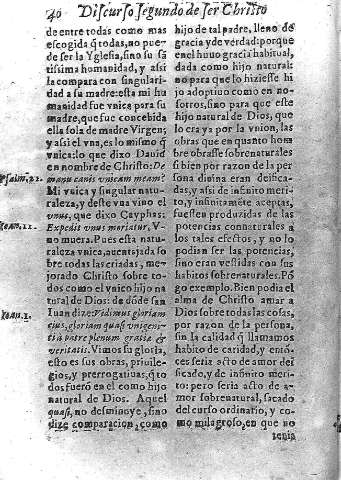 40 Discurso segundo de ser Christo
de entre todas como mas
escogida q̃ todas, no pue-
de ser la Yglesia, sino su sã
tissima humanidad, y assi
la compara con singulari-
dad a su madre: esta mi hu
manidad fue vnica para su
madre, que fue concebida
ella sola de madre Virgen;
y assi el vna, es lo mismo q̃
vnica: lo que dixo Dauid
en nombre de Christo: De
manu canis vnicam meam?
Mi vnica y singular natu-
raleza, y deste vna vino el
vnus, que dixo Cayphas:
Expedit vnus moriatur, V-
no muera. Pues esta natu-
raleza vnica, auentajada so
bre todas las criadas, me-
jorado Christo sobre to-
dos como el vnico hijo na
tural de Dios: de dõde san
Iuan dize: Vidimus gloriam
eius, gloriam quasi vnigeni-
ti à patre plenum gratiæ &
veritatis. Vimos su gloria,
esto es sus obras, priuile-
gios, y prerrogatiuas, q̃ to
dos fuerõ en el como hijo
natural de Dios. Aquel
quasi, no desminoye, sino
dize comparacion, como
Psalm. 21.
Ioan. 11.
Ioan. 1.
hijo de tal padre, lleno de
gracia y de verdad: porque
en el huuo gracia habitual,
dada como hijo natural:
no para que lo hiziesse hi
jo adoptiuo como en no-
sotros, sino para que este
hijo natural de Dios, que
lo era ya por la vnion, las
obras que en quanto hom
bre obrasse sobrenaturales
si bien por razon de la per
sona diuina eran deifica-
das, y assi de infinito meri-
to, y infinitamẽte aceptas,
fuessen produzidas de las
potencias connaturales à
los tales efectos, y no lo
podian ser las potencias,
sino eran vestidas con sus
habitos sobrenaturales. Põ
go exemplo. Bien podia el
alma de Christo amar a
Dios sobre todas las cosas,
por razon de la persona,
sin la calidad q̃ llamamos
habito de caridad, y entõ-
ces seria acto de amor dei
ficado, y de infinito meri-
to: pero seria acto de a-
mor sobrenatural, sacado
del curso ordinario, y co-
mo milagroso, en que no
tenia